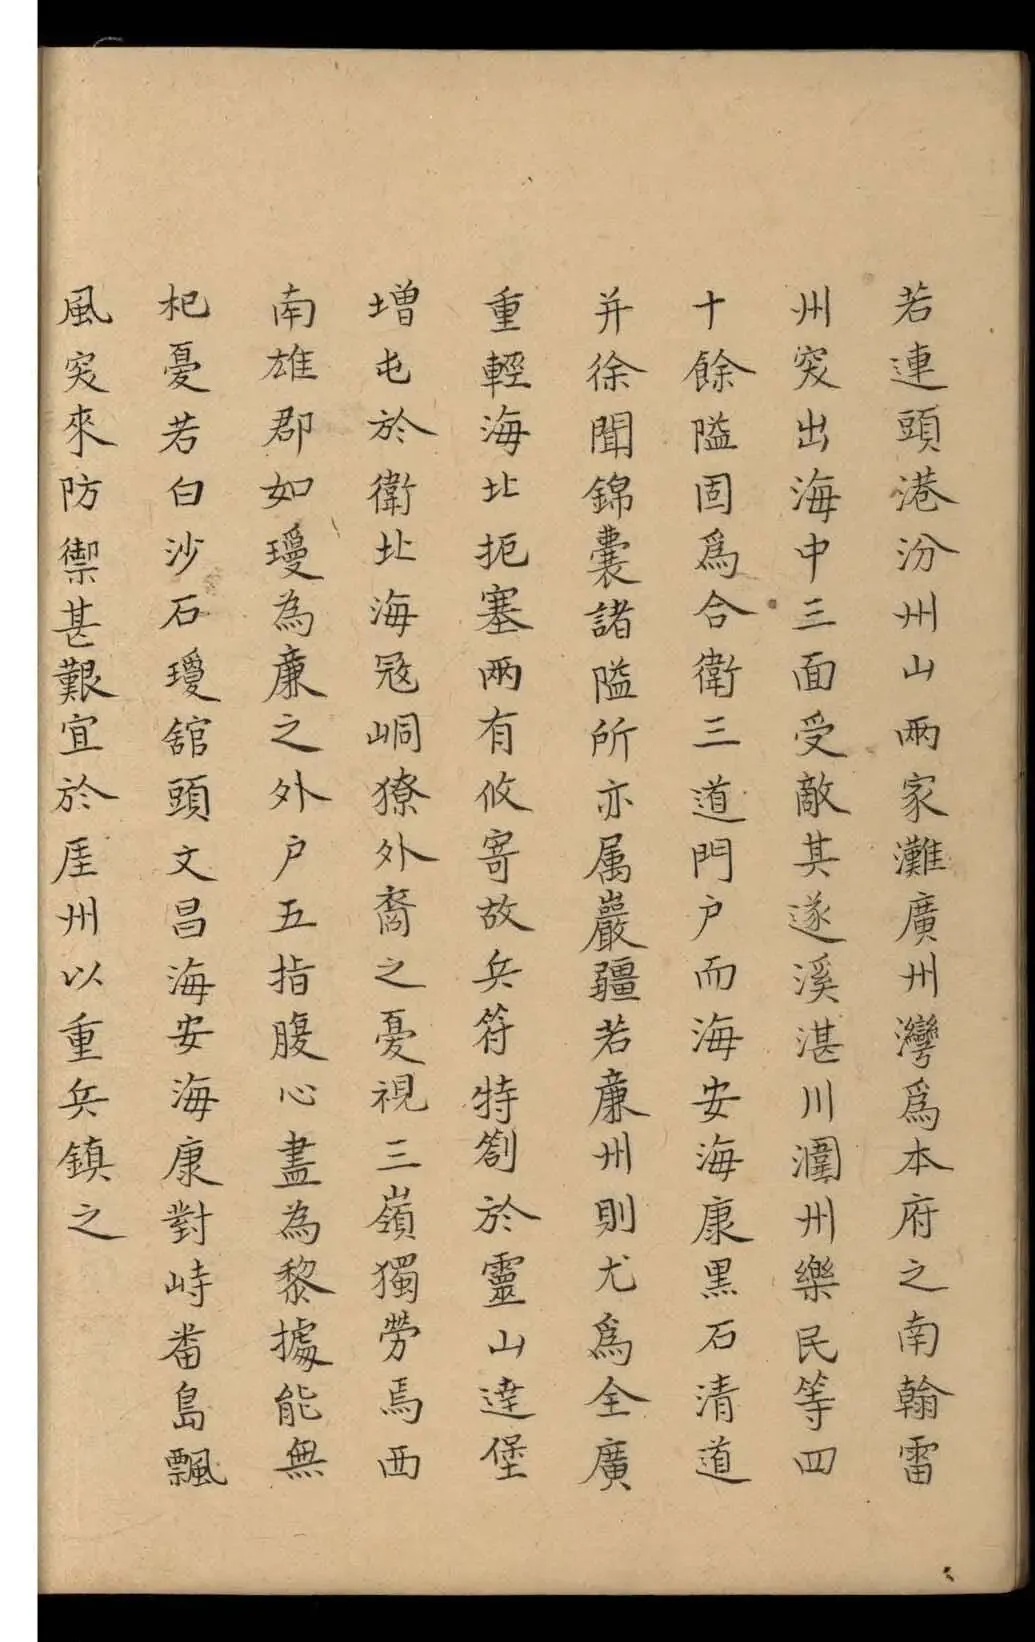 若連頭港汾州山兩家灘廣州灣爲本府之南翰雷
州突出海中三面受敵其遂溪湛川潿州樂民等四
十餘隘固爲合衛三道門户而海安海康黒石清道
并徐聞錦囊諸隘所亦属巖疆若廉州則尤爲全廣
重輕海北扼塞兩有攸寄故兵符特劄於靈山達堡
增屯於衛北海冦峒獠外裔之憂視三嶺獨勞焉西
南雄郡如瓊為廉之外户五指腹心盡為黎據能無
杞憂若白沙石瓊舘頭文昌海安海康對峙畨島飄
風突來防禦甚艱宜於厓州以重兵鎮之